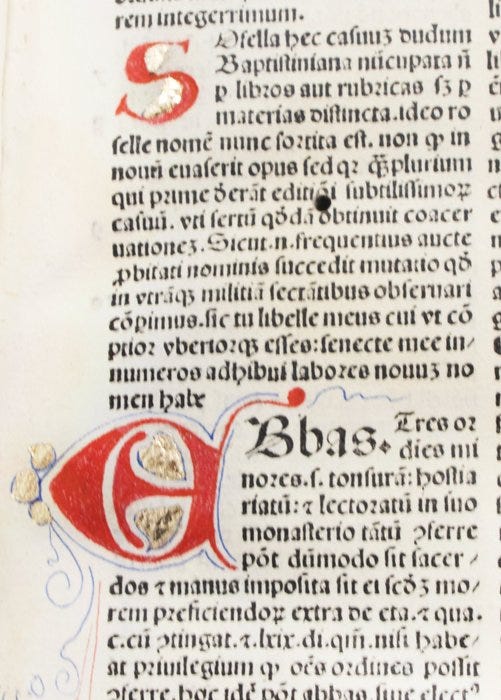 rem integerrimum.
SOsella hec casuuʒ dudum
Baptistiniana nūcupata ñ
ꝑ libros aut rubricas sʒ ꝑ
materias distincta.ideo ro
selle nomē nunc sortita est. non ꝙ in
nouū euaserit opus sed qꝛ qᷓꝫplurium
qui prime đerāt editiōi subtilissimoꝝ
casuū. vti sertū qđdā obtinuit coacer
uationeʒ. Sicut.n.frequentius aucte
ꝓbitati nominis succedit mutatio qđ
in vtrāqʒ militiā sectātibus obseruari
cōpimus.sic tu libelle meus cui vt cō
ptior vberiorqʒ esses: senecte mee in⸗
numeros adhibui labores nouuʒ no
men habe
ABbas. Tres or
dies mi
nores.s. tonsurā: hostia
riatū: ⁊ lectoratū in suo
monasterio tātū ꝯferre
pōt dūmodo sit sacer⸗
dos ⁊ manus imposita sit ei scđʒ mo⸗
rem preficiendoꝝ extra de eta.⁊ qua.
c.cū ꝯtingat.⁊.lxix.di.qm̄.nisi habe⸗
at priuilegium ꝙ oēs ordines possit
ꝯferre.hoc idē pōt abbas